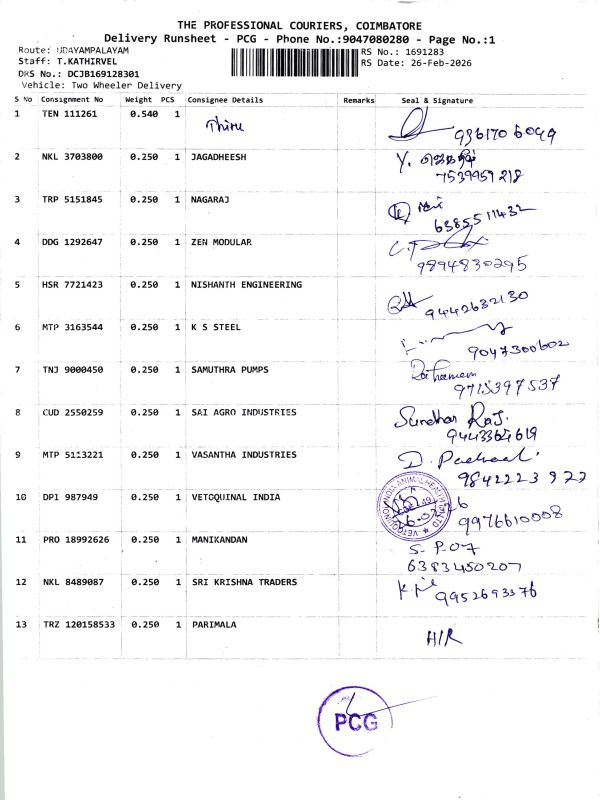 THE PROFESSIONAL COURIERS, COIMBATORE
Delivery Runsheet - PCG - Phone No.:9047080280 - Page No.:1
Route: UDAYAMPALAYAM
RS No.: 1691283
Staff: T.KATHIRVEL
RS Date: 26-Feb-2026
DRS No.: DCJB169128301
Vehicle: Two Wheeler Delivery
S No Consignment No Weight PCS Consignee Details Remarks Seal & Signature
1 TEN 111261 0.540 1 Thiru
2 NKL 3703800 0.250 1 JAGADHEESH
7539959218
3 TRP 5151845 0.250 1 NAGARAJ
6385511432
4 DDG 1292647 0.250 1 ZEN MODULAR
9894830295
5 HSR 7721423 0.250 1 NISHANTH ENGINEERING
9442632130
6 MTP 3163544 0.250 1 K S STEEL
9047300602
7 TNJ 9000450 0.250 1 SAMUTHRA PUMPS
9715397537
8 CUD 2550259 0.250 1 SAI AGRO INDUSTRIES Sundhar Raj.
9443364619
9 MTP 5113221 0.250 1 VASANTHA INDUSTRIES
9842223922
10 DPI 987949 0.250 1 VETOQUINAL INDIA
9976610008
11 PRO 18992626 0.250 1 MANIKANDAN
6383450207
12 NKL 8489087 0.250 1 SRI KRISHNA TRADERS
9952693376
13 TRZ 120158533 0.250 1 PARIMALA H/R
PCG